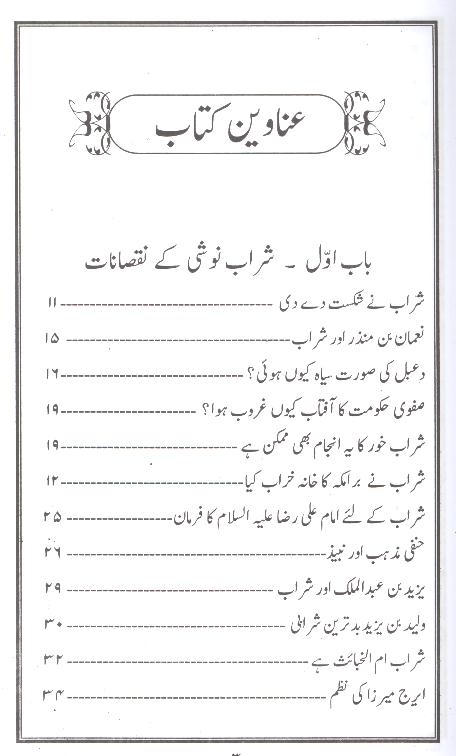 عناوین کتاب
باب اوّل ۔ شراب نوشی کے نقصانات
شراب نے شکست دے دی ۱۱
نعمان بن منذر اور شراب ۱۵
دعبل کی صورت سیاہ کیوں ہوئی؟ ۱۶
صفوی حکومت کا آفتاب کیوں غروب ہوا؟ ۱۹
شراب خور کا یہ انجام بھی ممکن ہے ۱۹
شراب نے برامکہ کا خانہ خراب کیا ۱۲
شراب کے لئے امام علی رضا علیہ السلام کا فرمان ۲۵
حنفی مذہب اور نبیذ ۲۶
یزید بن عبدالملک اور شراب ۲۹
ولید بن یزید بدترین شرابی ۳۰
شراب ام الخبائث ہے ۳۲
ایرج میرزا کی نظم ۳۴